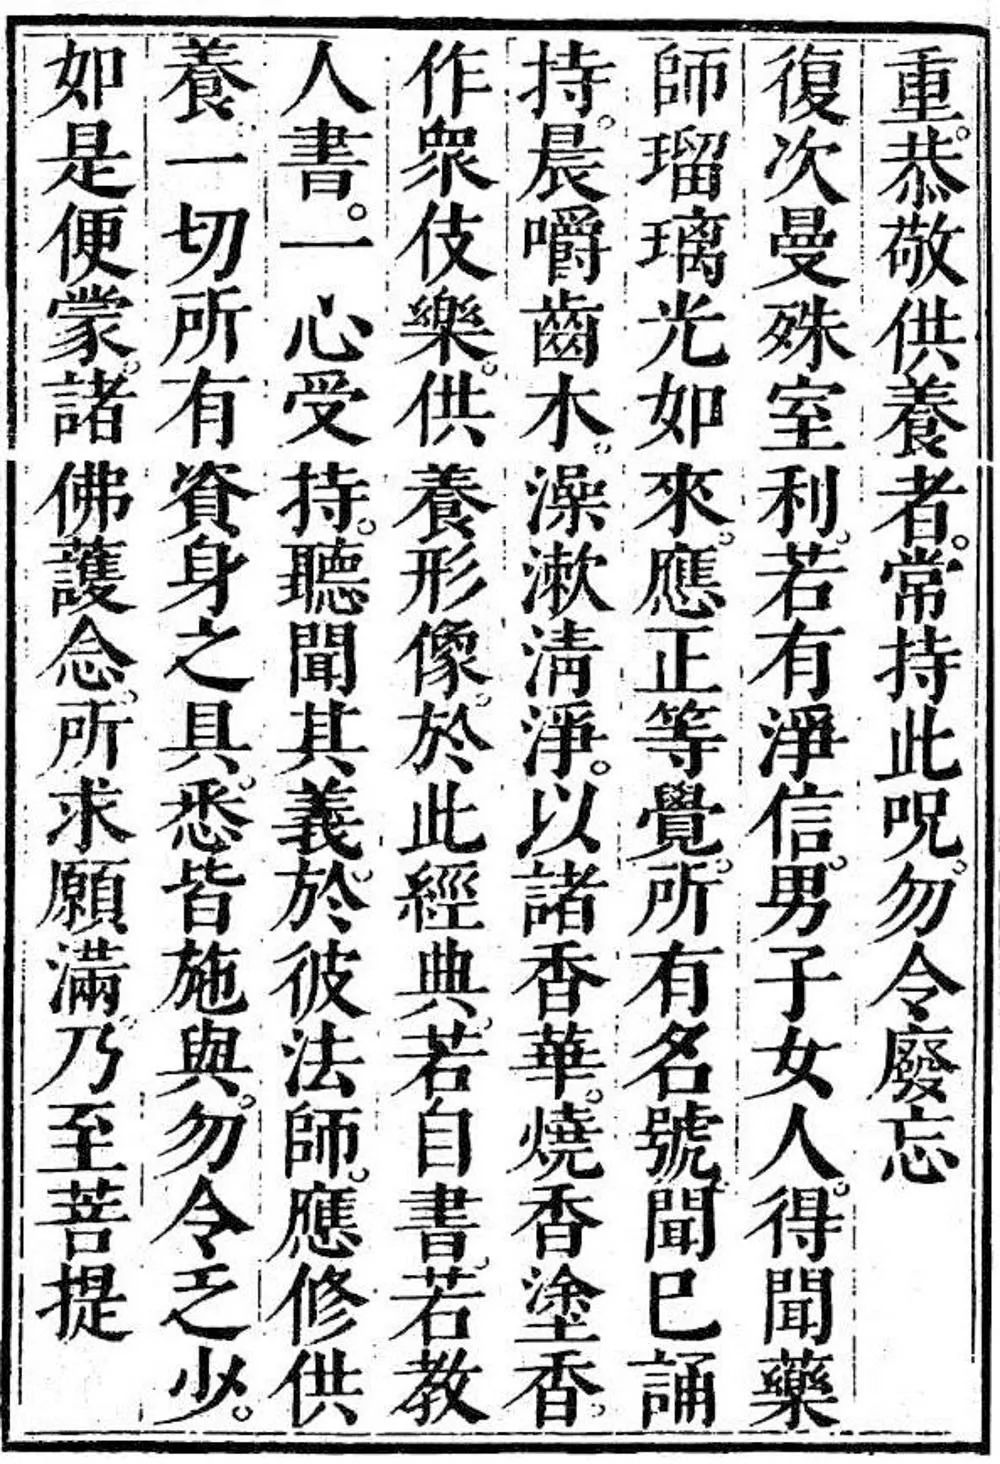 重。恭敬供養者。常持此呪。勿令廢忘
復次曼殊室利。若有淨信男子女人。得聞藥
師瑠璃光如來。應正等覺。所有名號。聞已誦
持。晨嚼齒木。澡漱淸淨。以諸香華。燒香塗香。
作衆伎樂。供養形像。於此經典。若自書。若教
人書。一心受持。聽聞其義。於彼法師。應修供
養。一切所有資身之具。悉皆施與。勿令乏少。
如是便蒙。諸佛護念。所求願滿。乃至菩提